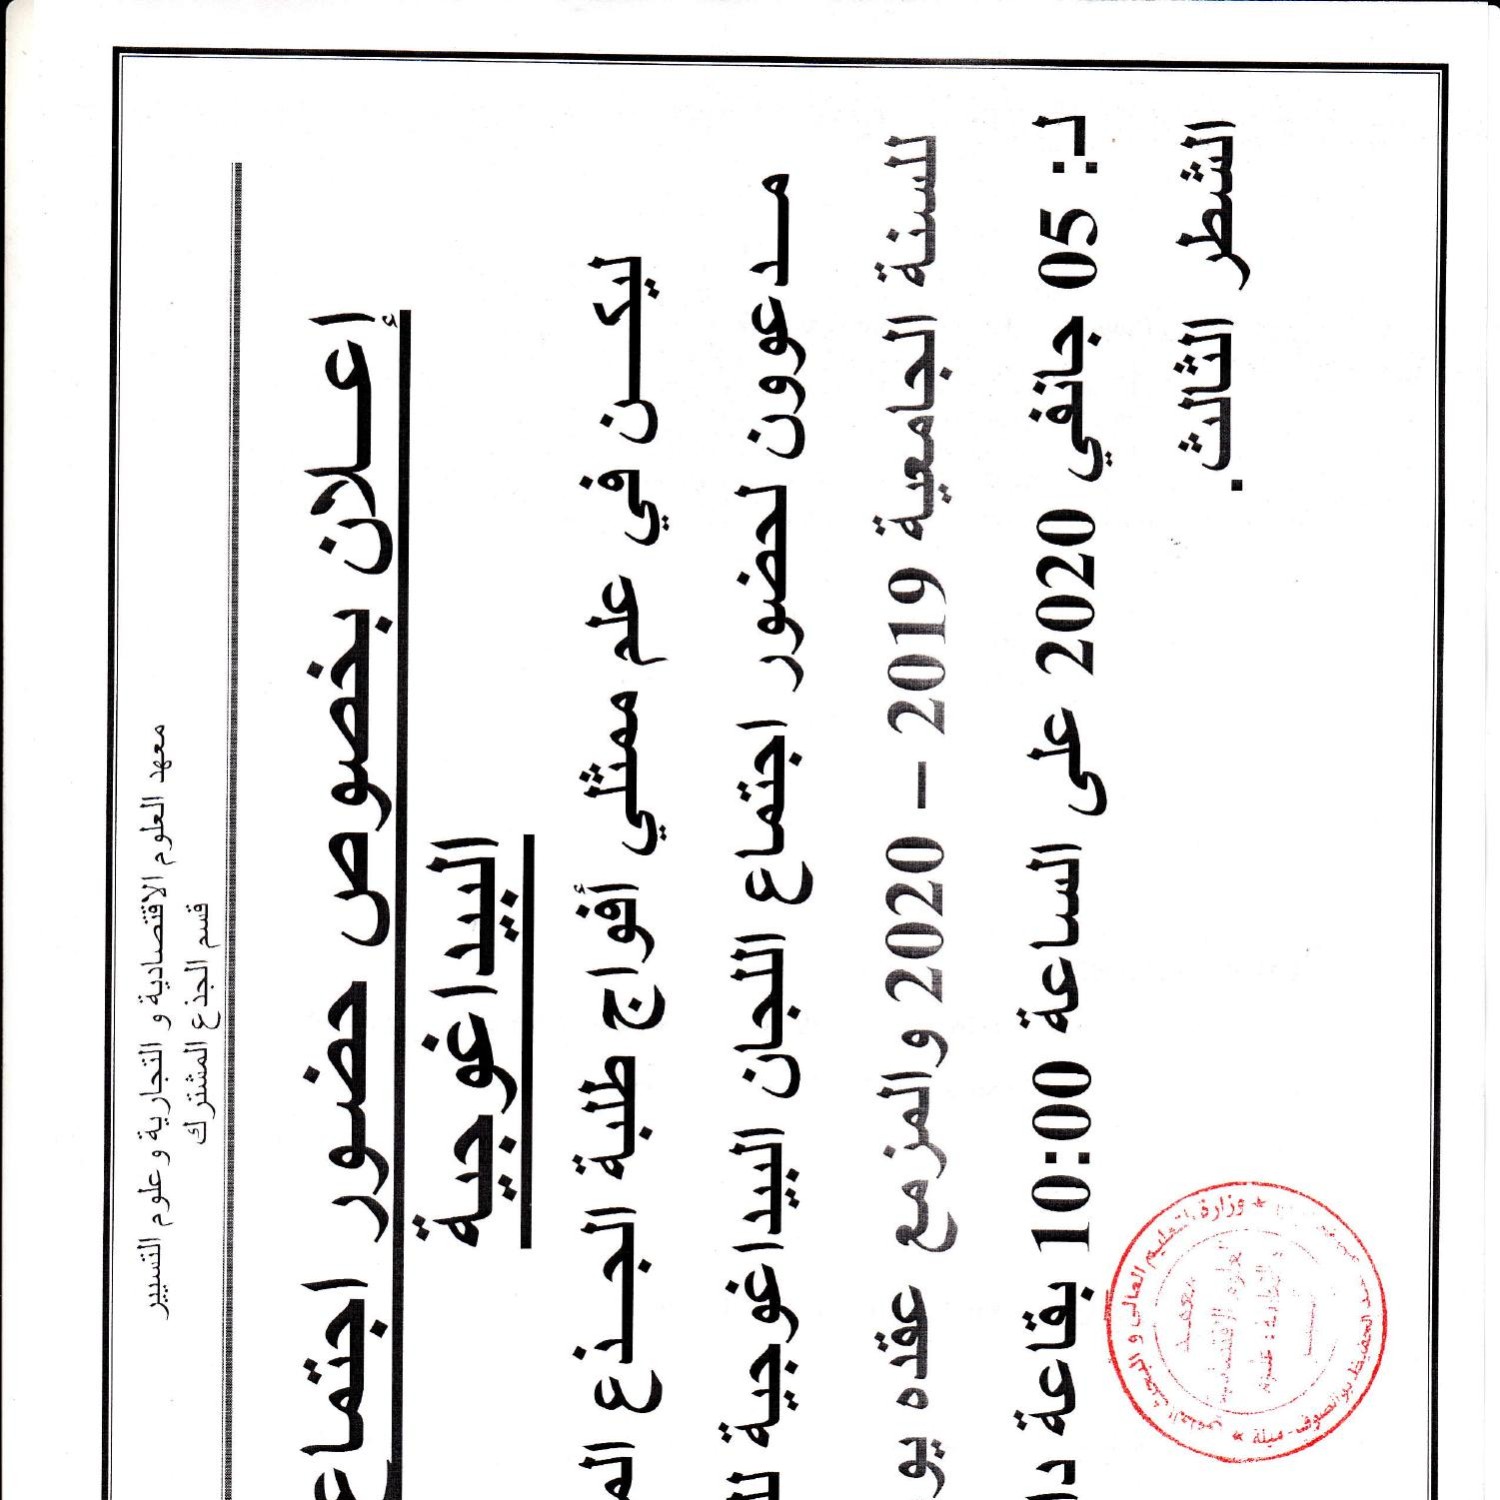 معهد العلوم الاقتصادية و التجارية و علوم التسيير
قسم الجذع المشترك
إعــلان بخصوص حضور اجتماع
البيداغوجية
ليكـــن في علم ممثلي أفواج طلبة الجــذع
مــدعوون لحضور اجتماع اللجان البيداغوجية
للسنة الجامعية 2019 – 2020 والمزمع عقده
لـ: 05 جانفي 2020 على الساعة 10:00 بقاعة
الشطر الثالث.
وزارة التعليم العالي و البحث العلمي
عبد الحفيظ بوالصوف - ميلة
معهد